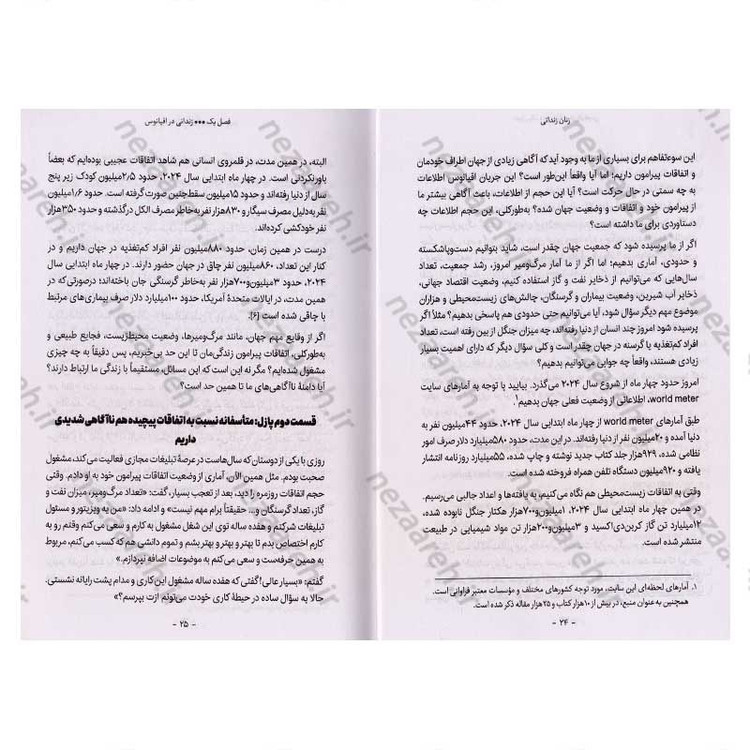 زنان زندانی
این سوءتفاهم برای بسیاری از ما به وجود آید که آگاهی زیادی از جهان اطراف خودمان
و اتفاقات پیرامون داریم؛ اما آیا واقعاً این‌طور است؟ این جریان اقیانوس اطلاعات
به چه سمتی در حال حرکت است؟ آیا این حجم از اطلاعات، باعث آگاهی بیشتر ما
از پیرامون خود و اتفاقات و وضعیت جهان شده؟ به‌طورکلی، این حجم از اطلاعات چه
دستاوردی برای ما داشته است؟
اگر از ما پرسیده شود که جمعیت جهان چقدر است، شاید بتوانیم دست‌وپاشکسته
و حدودی، آماری بدهیم؛ اما اگر از ما آمار مرگ‌ومیر امروز، رشد جمعیت، تعداد
سال‌هایی که می‌توانیم از ذخایر نفت و گاز استفاده کنیم، وضعیت اقتصاد جهانی،
ذخایر آب شیرین، وضعیت بیماران و گرسنگان، چالش‌های زیست‌محیطی و هزاران
موضوع مهم دیگر سؤال شود، آیا می‌توانیم حتی حدودی هم پاسخی بدهیم؟ مثلاً اگر
پرسیده شود امروز چند انسان از دنیا رفته‌اند، چه میزان جنگل از بین رفته است، تعداد
افراد کم‌تغذیه یا گرسنه در جهان چقدر است و کلی سؤال دیگر که دارای اهمیت بسیار
زیادی هستند، واقعاً چه جوابی می‌توانیم بدهیم؟
امروز حدود چهار ماه از شروع سال ۲۰۲۴ می‌گذرد. بیایید با توجه به آمارهای سایت
world meter، اطلاعاتی از وضعیت فعلی جهان بدهیم!¹
طبق آمارهای world meter از چهار ماه ابتدایی سال ۲۰۲۴، حدود ۴۴میلیون نفر به
دنیا آمده و ۲۰میلیون نفر از دنیا رفته‌اند. در این مدت، حدود ۵۸۰میلیارد دلار صرف امور
نظامی شده، ۹۲۹هزار جلد کتاب جدید نوشته و چاپ شده، ۵۵میلیارد روزنامه انتشار
یافته و ۹۲۰میلیون دستگاه تلفن همراه فروخته شده است.
وقتی به اتفاقات زیست‌محیطی هم نگاه می‌کنیم، به یافته‌ها و اعداد جالبی می‌رسیم.
در همین چهار ماه ابتدایی سال ۲۰۲۴، ۱میلیون‌و۷۰۰هزار هکتار جنگل نابوده شده،
۱۲میلیارد تن گاز کربن‌دی‌اکسید و ۳میلیون‌و۲۰۰هزار تن مواد شیمیایی در طبیعت
منتشر شده است.
۱. آمارهای لحظه‌ای این سایت، مورد توجه کشورهای مختلف و مؤسسات معتبر فراوانی است.
همچنین به‌عنوان منبع، در بیش از ۱۰هزار کتاب و ۲۵هزار مقاله ذکر شده است.
- ۲۴ -
فصل یک ●●● زندانی در اقیانوس
البته، در همین مدت، در قلمروی انسانی هم شاهد اتفاقات عجیبی بوده‌ایم که بعضاً
باورنکردنی است. در چهار ماه ابتدایی سال ۲۰۲۴، حدود ۲/۵میلیون کودک زیر پنج
سال از دنیا رفته‌اند و حدود ۱۵میلیون سقط‌جنین صورت گرفته است. حدود ۱/۶میلیون
نفر به‌دلیل مصرف سیگار و ۸۳۰هزار نفر به‌خاطر مصرف الکل درگذشته و حدود ۳۵۰هزار
نفر خودکشی کرده‌اند.
درست در همین زمان، حدود ۸۸۰میلیون نفر افراد کم‌تغذیه در جهان داریم و در
کنار این تعداد، ۸۶۰میلیون نفر چاق در جهان حضور دارند. در چهار ماه ابتدایی سال
۲۰۲۴، حدود ۳میلیون‌و۷۰۰هزار نفر به‌خاطر گرسنگی جان باخته‌اند؛ درصورتی‌که در
همین مدت، در ایالات متحدهٔ آمریکا، حدود ۱۰۰میلیارد دلار صرف بیماری‌های مرتبط
با چاقی شده است [۶].
اگر از وقایع مهم جهان، مانند مرگ‌ومیرها، وضعیت محیط‌زیست، فجایع طبیعی و
به‌طورکلی، اتفاقات پیرامون زندگی‌مان تا این حد بی‌خبریم، پس دقیقاً به چه چیزی
مشغول شده‌ایم؟ مگر نه این است که این مسائل، مستقیماً با زندگی ما ارتباط دارند؟
آیا دامنهٔ ناآگاهی‌های ما تا همین حد است؟
قسمت دوم پازل: متأسفانه نسبت به اتفاقات پیچیده هم ناآگاهی شدیدی
داریم
روزی با یکی از دوستان که سال‌هاست در عرصهٔ تبلیغات مجازی فعالیت می‌کند، مشغول
صحبت بودم. مثل همین الآن، آماری از وضعیت اتفاقات پیرامون خود به او دادم. وقتی
حجم اتفاقات روزمره را دید، بعد از تعجب بسیار، گفت: «تعداد مرگ‌ومیر، میزان نفت و
گاز، تعداد گرسنگان و... حقیقتاً برام مهم نیست» و ادامه داد: «من یه ویزیتور و مسئول
تبلیغات شرکتم و هفده ساله توی این شغل مشغول به کارم و سعی می‌کنم وقتم رو به
کارم اختصاص بدم تا بهتر و بهتر بشم و تموم دانشی هم که کسب می‌کنم، مربوط
به همین حرفه‌ست و سعی می‌کنم به موضوعات اضافه نپردازم.»
گفتم: «بسیار عالی! گفتی که هفده ساله مشغول این کاری و مدام پشت رایانه نشستی.
حالا یه سؤال ساده در حیطهٔ کاری خودت می‌تونم ازت بپرسم؟»
- ۲۵ -
nezaareh.ir